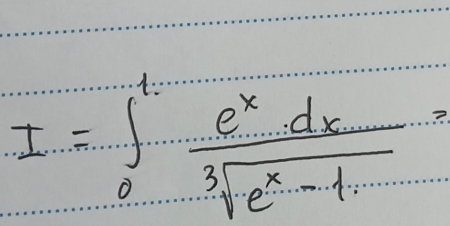 I = ∫₀¹ eˣ · dx / ∛(eˣ - 1) =